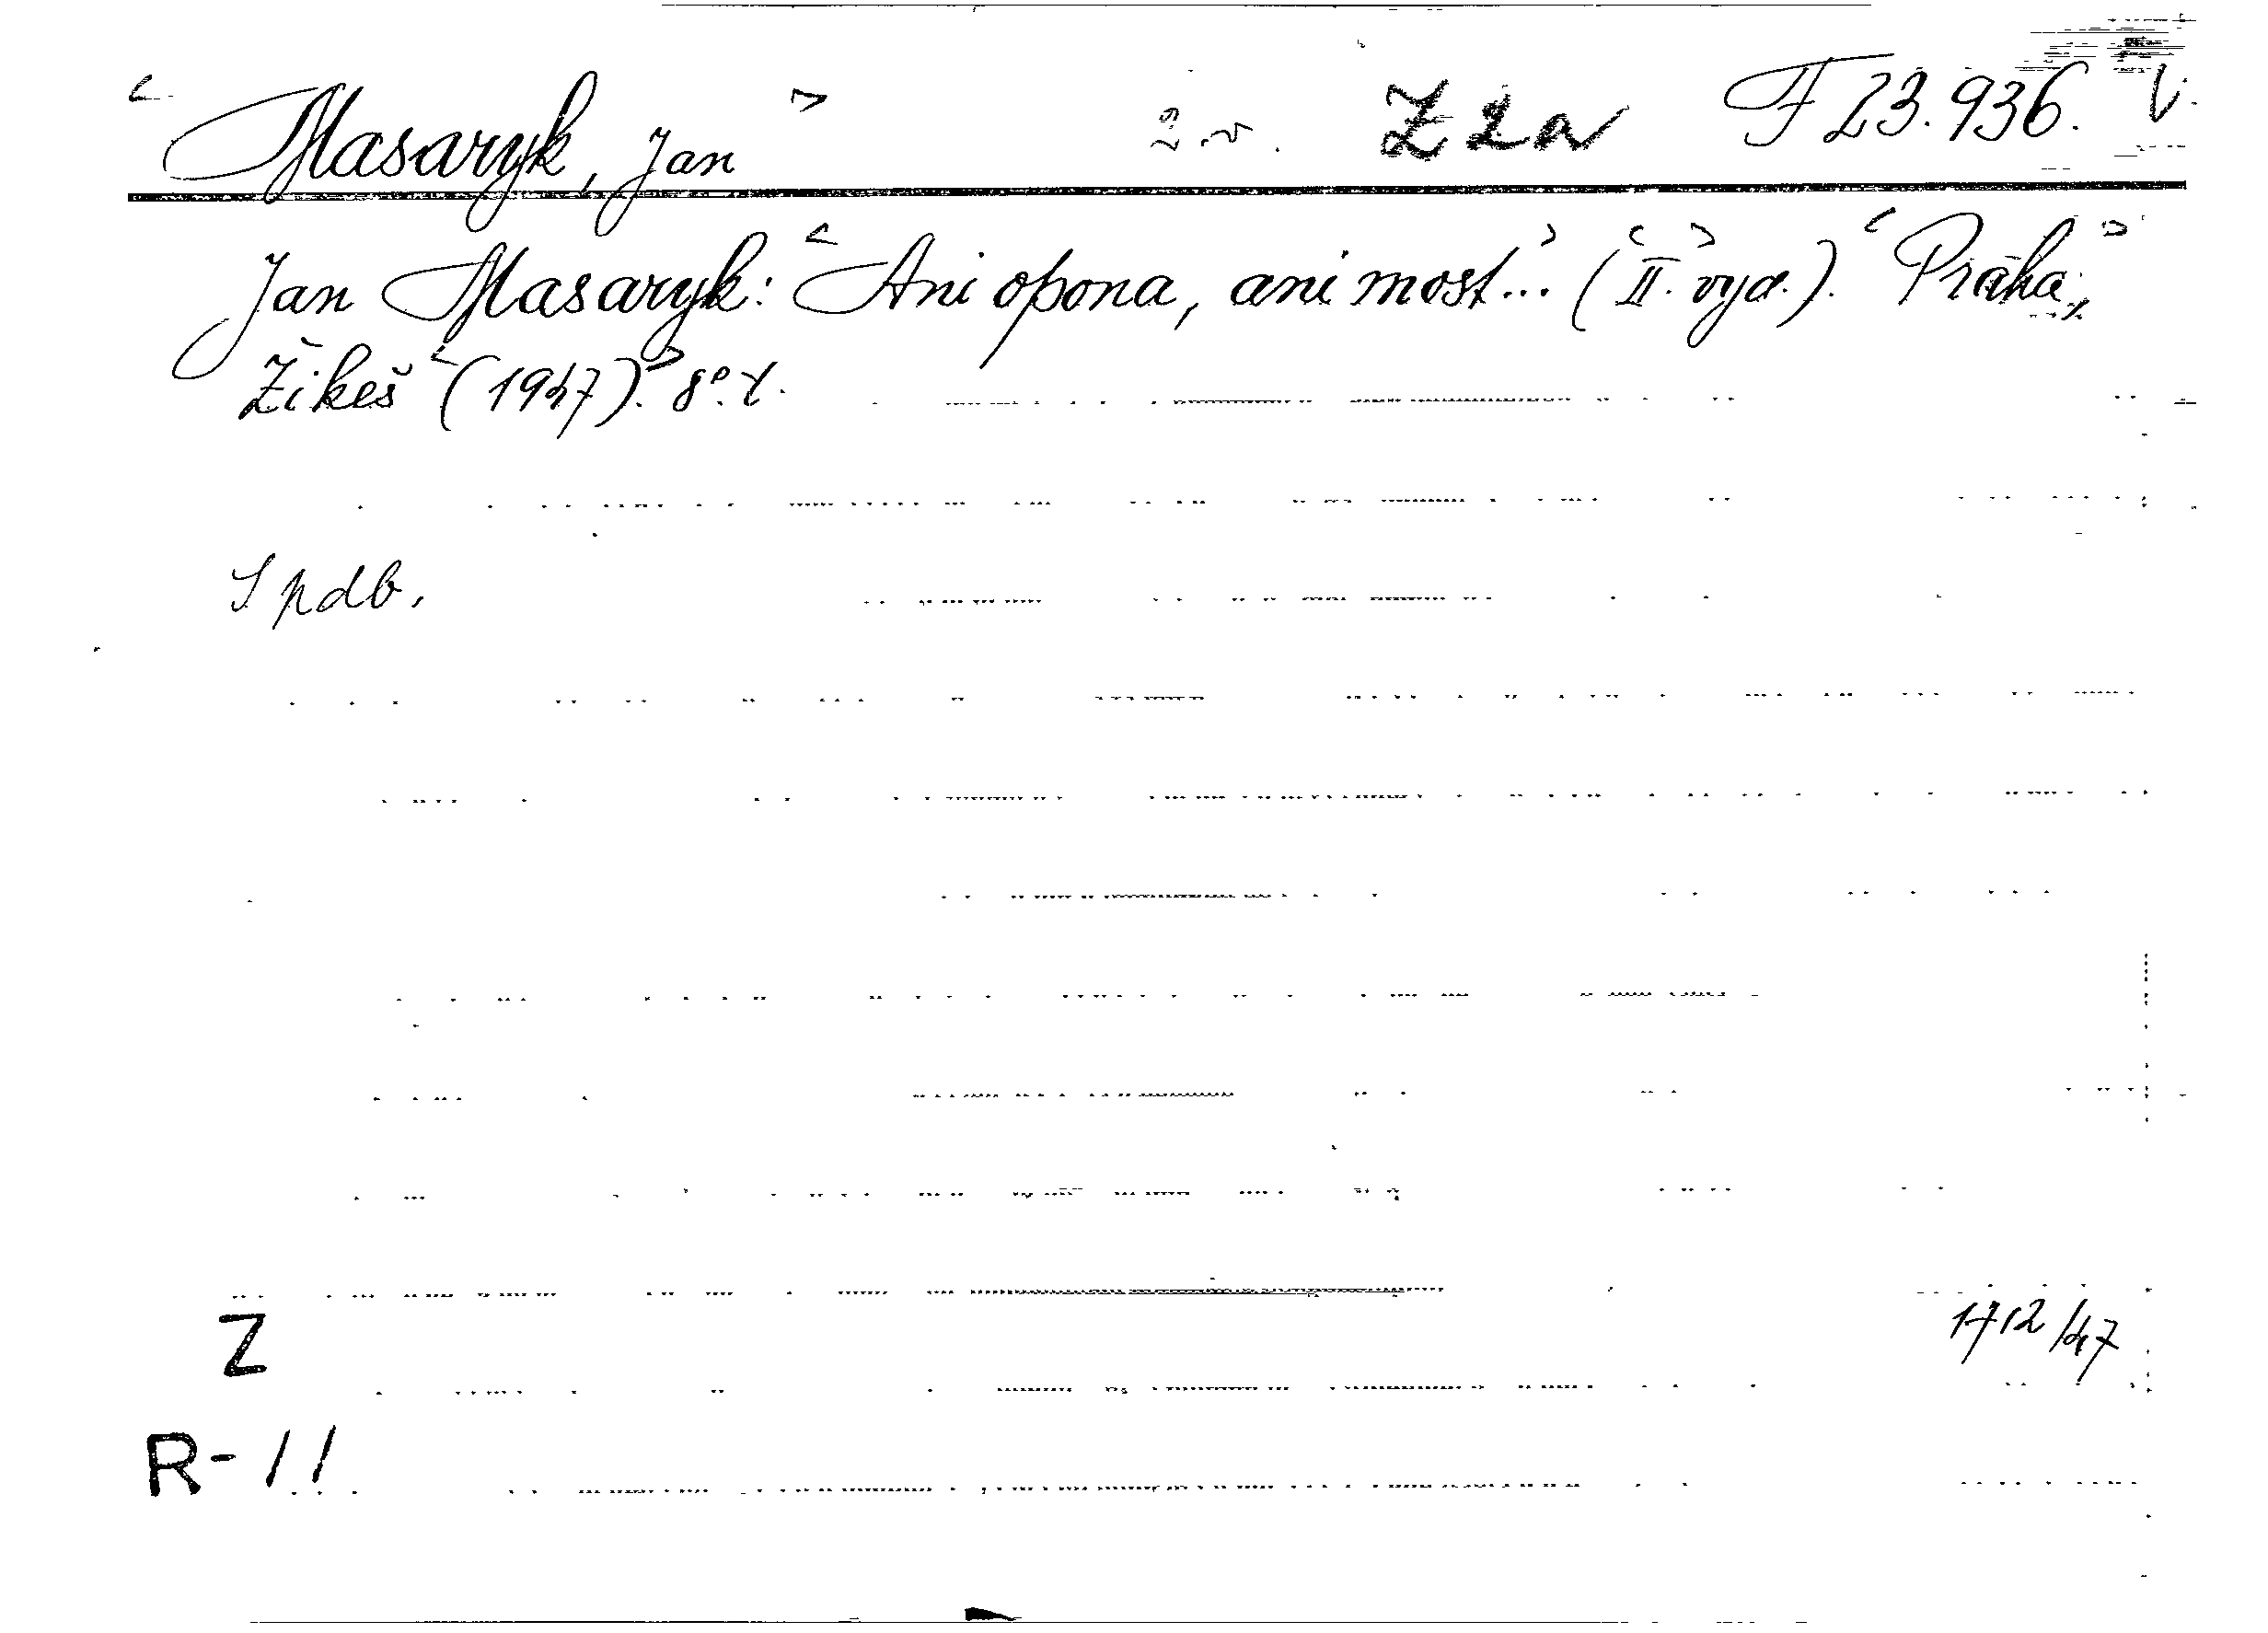 <Masaryk, Jan> Z2a F 23.936. V.
Jan Masaryk: <Ani opona, ani most...> (<II.> vyd.). <Praha,>
Žikeš <(1947).> 8°. t.
S pdb.
Z 1712/47
R-11